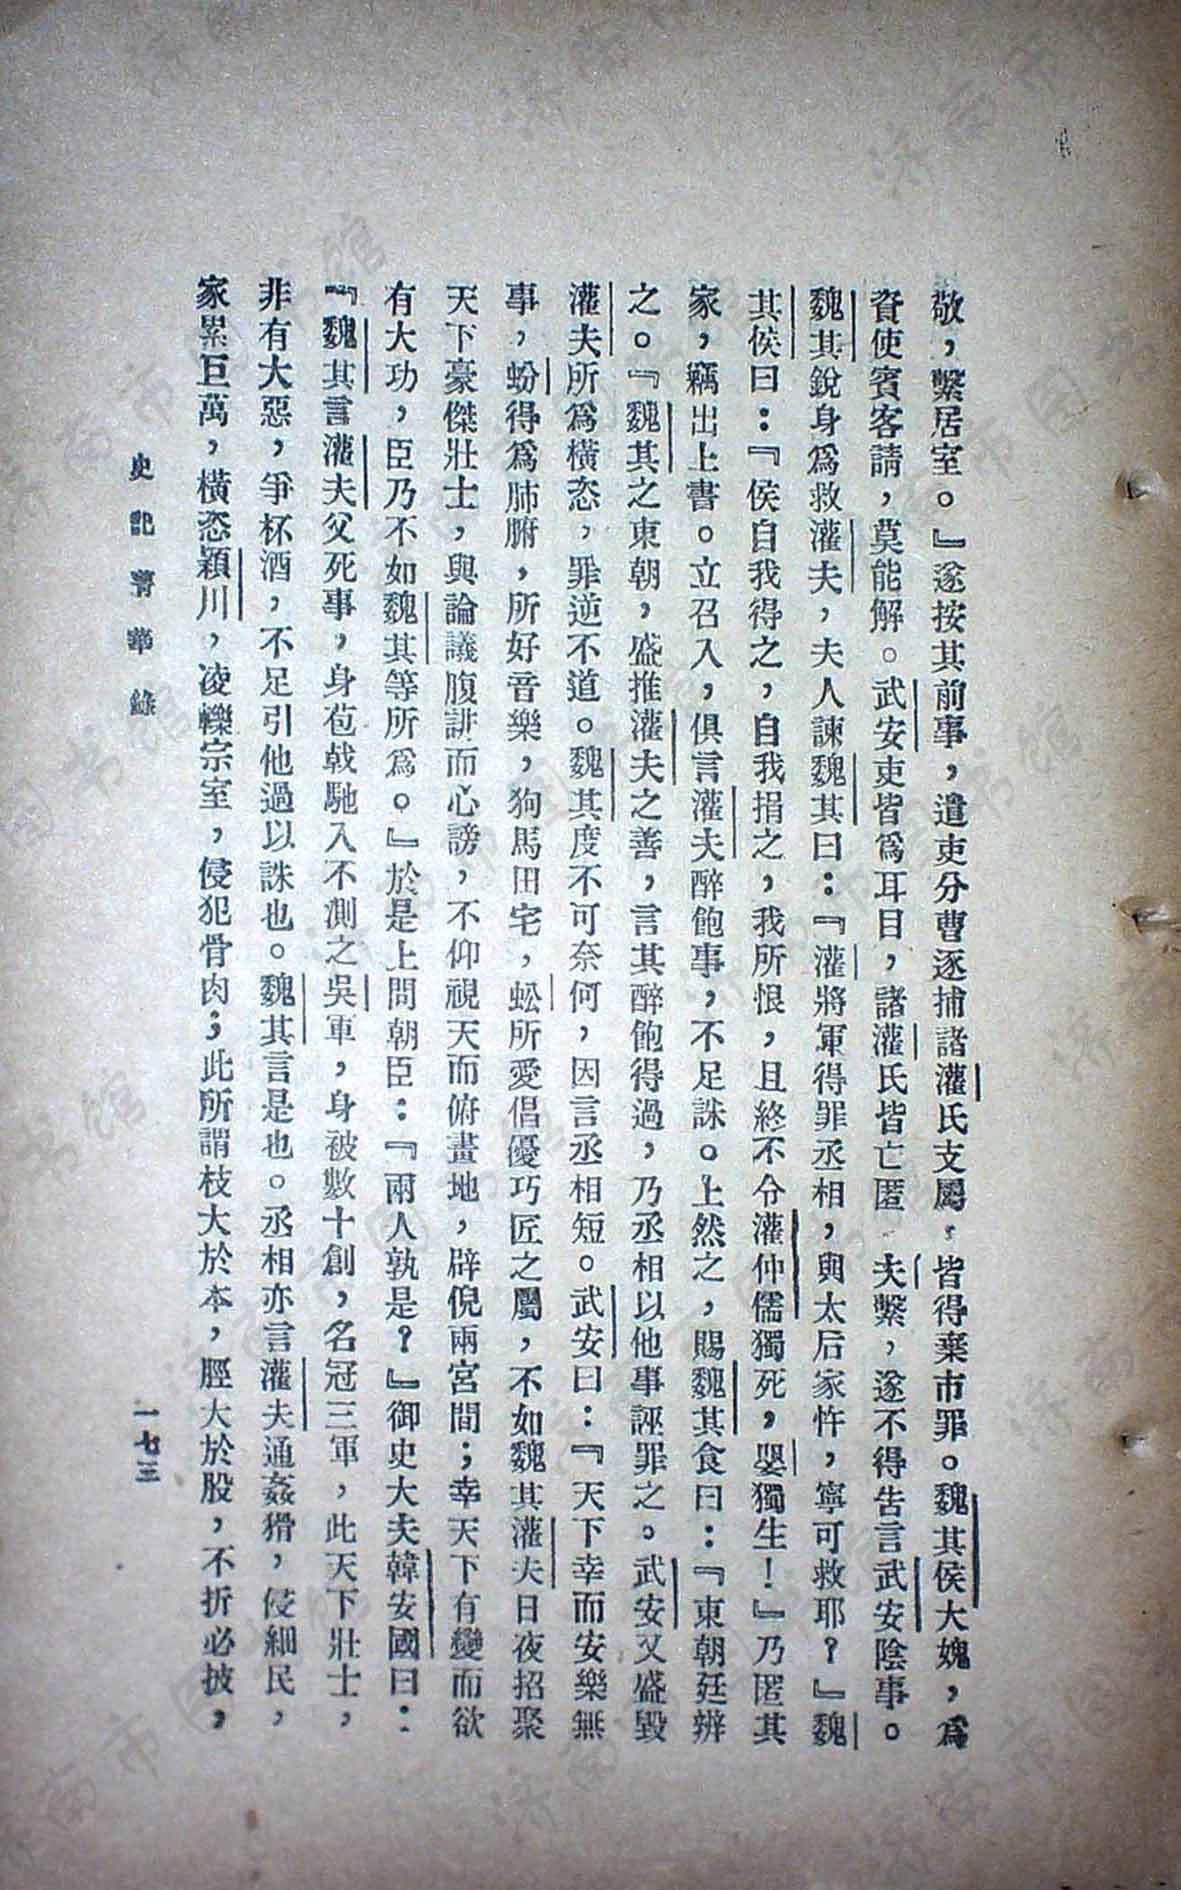 敬，繫居室。』遂按其前事，遣吏分曹逐捕諸灌氏支屬，皆得棄市罪。魏其侯大媿，爲
資使賓客請，莫能解。武安吏皆爲耳目，諸灌氏皆亡匿，夫繫，遂不得吿言武安陰事。
魏其銳身爲救灌夫，夫人諫魏其曰：『灌將軍得罪丞相，與太后家忤，寧可救耶？』魏
其侯曰：『侯自我得之，自我捐之，我所恨，且終不令灌仲儒獨死，嬰獨生！』乃匿其
家，竊出上書。立召入，俱言灌夫醉飽事，不足誅。上然之，賜魏其食曰：『東朝廷辨
之。『魏其之東朝，盛推灌夫之善，言其醉飽得過，乃丞相以他事誣罪之。武安又盛毀
灌夫所爲橫恣，罪逆不道。魏其度不可奈何，因言丞相短。武安曰：『天下幸而安樂無
事，蚡得爲肺腑，所好音樂，狗馬田宅，蚣所愛倡優巧匠之屬，不如魏其灌夫日夜招聚
天下豪傑壯士，與論議腹誹而心謗，不仰視天而俯畫地，辟倪兩宮間；幸天下有變而欲
有大功，臣乃不如魏其等所爲。』於是上問朝臣：『兩人孰是？』御史大夫韓安國曰：
『魏其言灌夫父死事，身荷戟馳入不測之吳軍，身被數十創，名冠三軍，此天下壯士，
非有大惡，爭杯酒，不足引他過以誅也。魏其言是也。丞相亦言灌夫通姦猾，侵細民，
家累巨萬，橫恣潁川，凌轢宗室，侵犯骨肉；此所謂枝大於本，脛大於股，不折必披，
史記菁華錄
一七三
济南市图书馆